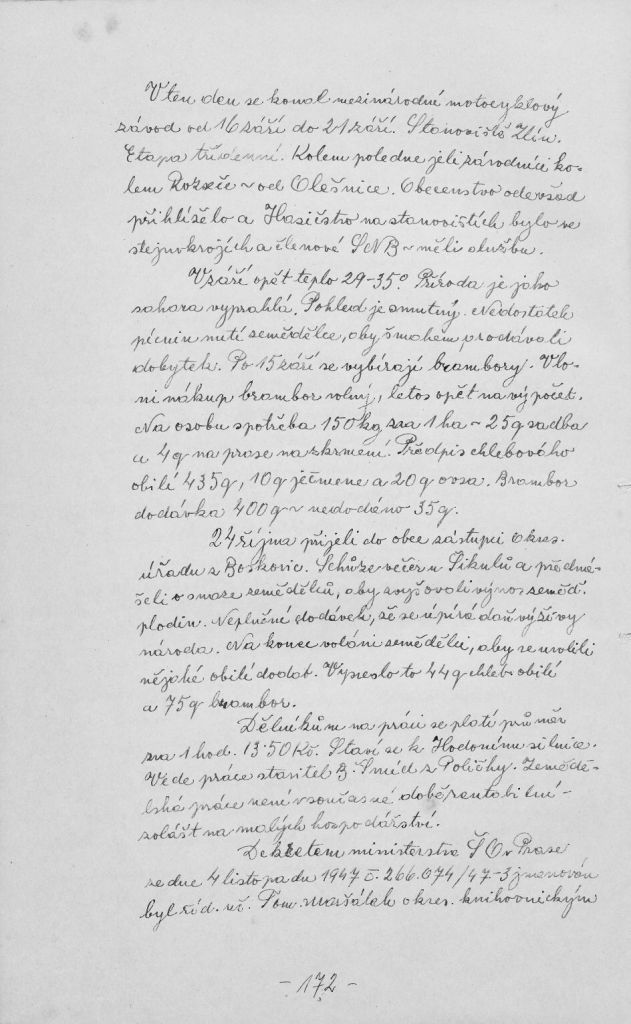 V ten den se konal mezinárodně motocyklový
závod od 16 září do 21 září. Stanoviště Zlín.
Etapa třídenní. Kolem poledne jeli závodníci ko-
lem Rozseče ~ od Olešnice. Obecenstvo odevšad
přihlíželo a Hasičstvo na stanovištích bylo ve
stejnokrojích a členové SNB ~ měli službu.
V září opět teplo 29-35° Příroda je jako
sahara vyprahlá. Pohled je smutný. Nedostatek
pícnin nutí zemědělce, aby šmahem prodávali
dobytek. Po 15 září se vybírají brambory. Vlo-
ni nákup brambor volný, letos opět na výpočet.
Na osobu spotřeba 150kg, na 1 ha - 25q sadba
a 4q na prase na zkrmení. Předpis chlebového
obilí 435q, 10q ječmene a 20q ovsa. Brambor
dodávka 400q ~ nedodáno 35q.
24 října přijeli do obce zástupci okres.
úřadu z Boskovic. Schůze večer u Sikulů a předná-
šeli o snaze zemědělců, aby zvyšovali výnos zeměd.
plodin. Neplnění dodávek, že se upírá daň výživy
národa. Na konec voláni zemědělci, aby se uvolili
nějaké obilí dodat. Vyneslo to 44q chleb. obilí
a 75q brambor.
Dělníkům na práci se platí průměr
za 1 hod. 13·50 Kč. Staví se k Hodonínu silnice.
Vede práce stavitel B. Smíd z Poličky. Zeměděl-
ská práce není v současné době rentabilní -
zvlášť na malých hospodářství.
Dekretem ministerstva ŠO v Praze
ze dne 4 listopadu 1947 č. 266.074/47-3 jmenován
byl říd. uč. Tom. Maršálek okres. knihovnickým
- 172 -